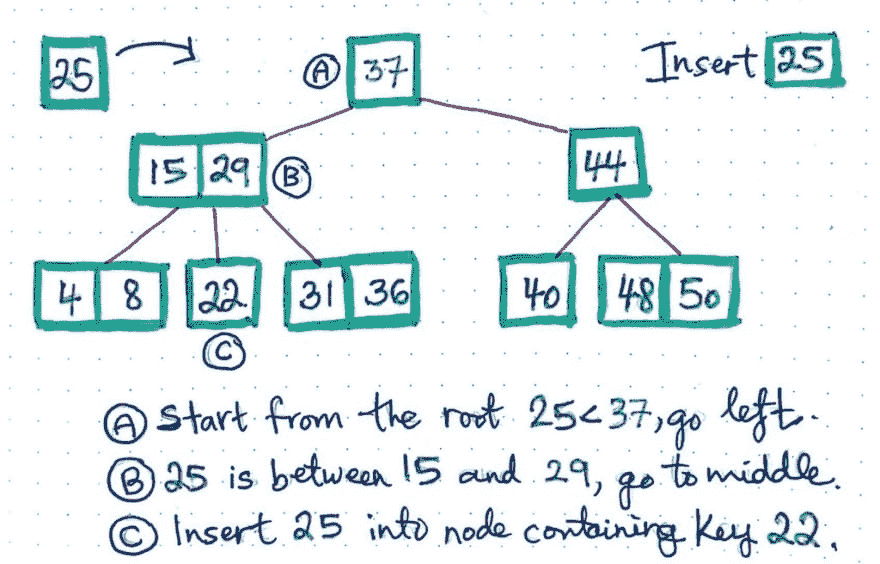 25
Insert 25
A 37
15 29 B
44
4 8
22
31 36
40
48 50
C
A Start from the root 25<37, go left.
B 25 is between 15 and 29, go to middle.
C Insert 25 into node containing Key 22.